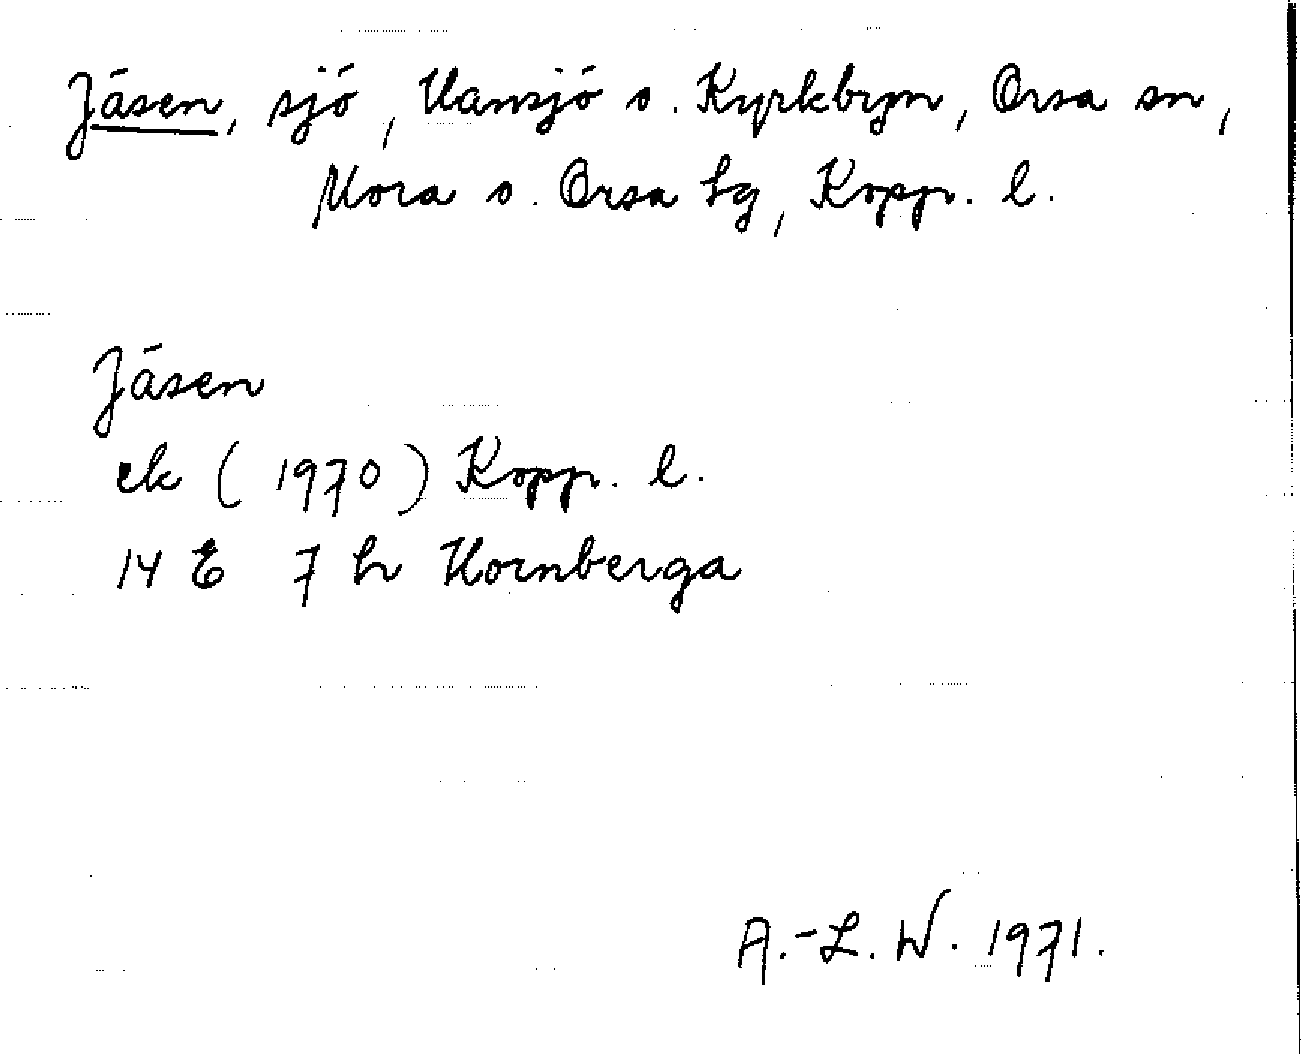 Jäsen, sjö, Hansjö o. Kyrkbyn, Orsa sn,
Mora o. Orsa tg, Kopp. l.
Jäsen
ek (1970) Kopp. l.
14 E 7 h Hornberga
A.-L. W. 1971.